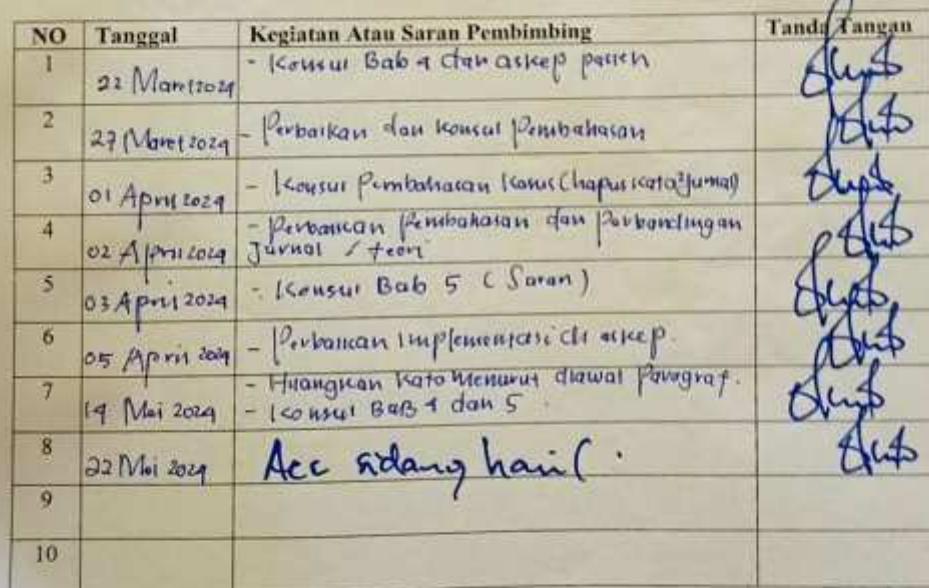 NO Tanggal Kegiatan Atau Saran Pembimbing Tanda Tangan
1 22 Maret 2024 - Konsul Bab 4 dan askep pasien
2 27 Maret 2024 - Perbaikan dan konsul Pembahasan
3 01 April 2024 - Konsul Pembahasan Kasus (hapus kata² jurnal)
4 02 April 2024 - Perbaikan Pembahasan dan Perbandingan
Jurnal / teori
5 03 April 2024 - Konsul Bab 5 (Saran)
6 05 April 2024 - Perbaikan implementasi di askep.
7 14 Mei 2024 - Hilangkan kata menurut diawal Paragraf.
- Konsul BaB 4 dan 5
8 22 Mei 2024 Acc sidang hasil.
9
10